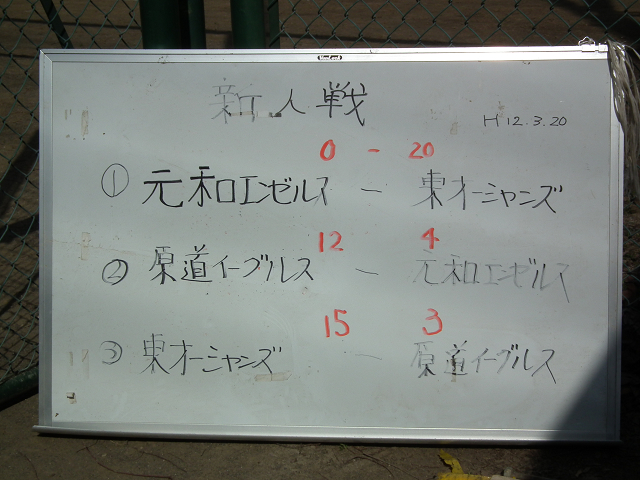 新人戦
H12.3.20
0 - 20
① 元和エンゼルス － 東オーシャンズ
12 4
② 原道イーグルス － 元和エンゼルス
15 3
③ 東オーシャンズ － 原道イーグルス